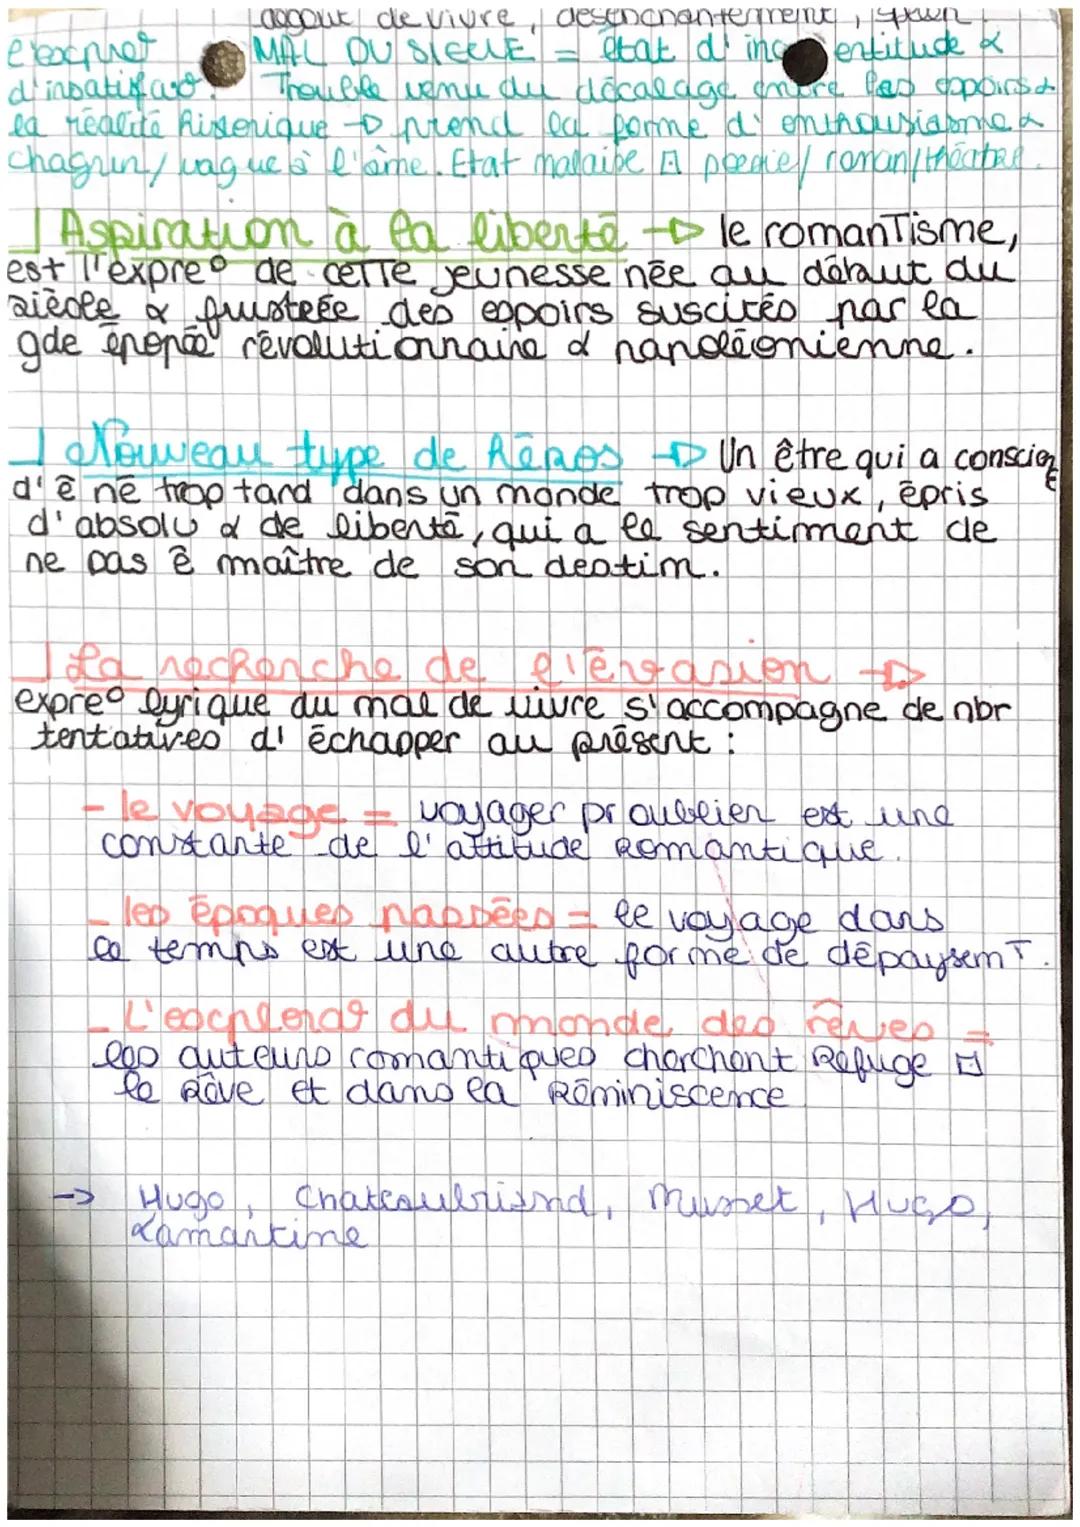 dégout de vivre, désenchantement, spleen.
MAL DU SIECLE = état d'incertitude &
d'insatisfac°. Trouble venu du décalage entre les espoirs &
la réalité historique → prend la forme d'enthousiasme &
chagrin/vague à l'âme. Etat malaise ⊡ poésie/roman/théâtre.
Aspiration à la liberté → le romantisme,
est l'expre° de cette jeunesse née au début du
siècle & frustrée des espoirs suscités par la
gde épopée révolutionnaire & napoléonienne.
Nouveau type de héros → Un être qui a conscience
d'ê né trop tard dans un monde trop vieux, épris
d'absolu & de liberté, qui a le sentiment de
ne pas ê maître de son destin.
La recherche de l'évasion →
expre° lyrique du mal de vivre s'accompagne de nbr
tentatives d'échapper au présent :
- le voyage = voyager pr oublier est une
constante de l'attitude romantique.
- les époques passées = le voyage dans
le temps est une autre forme de dépaysemT.
- L'explorat° du monde des rêves =
les auteurs romantiques cherchent refuge ⊡
le rêve et dans la réminiscence
→ Hugo, Chateaubriand, Musset, Hugo,
Lamartine